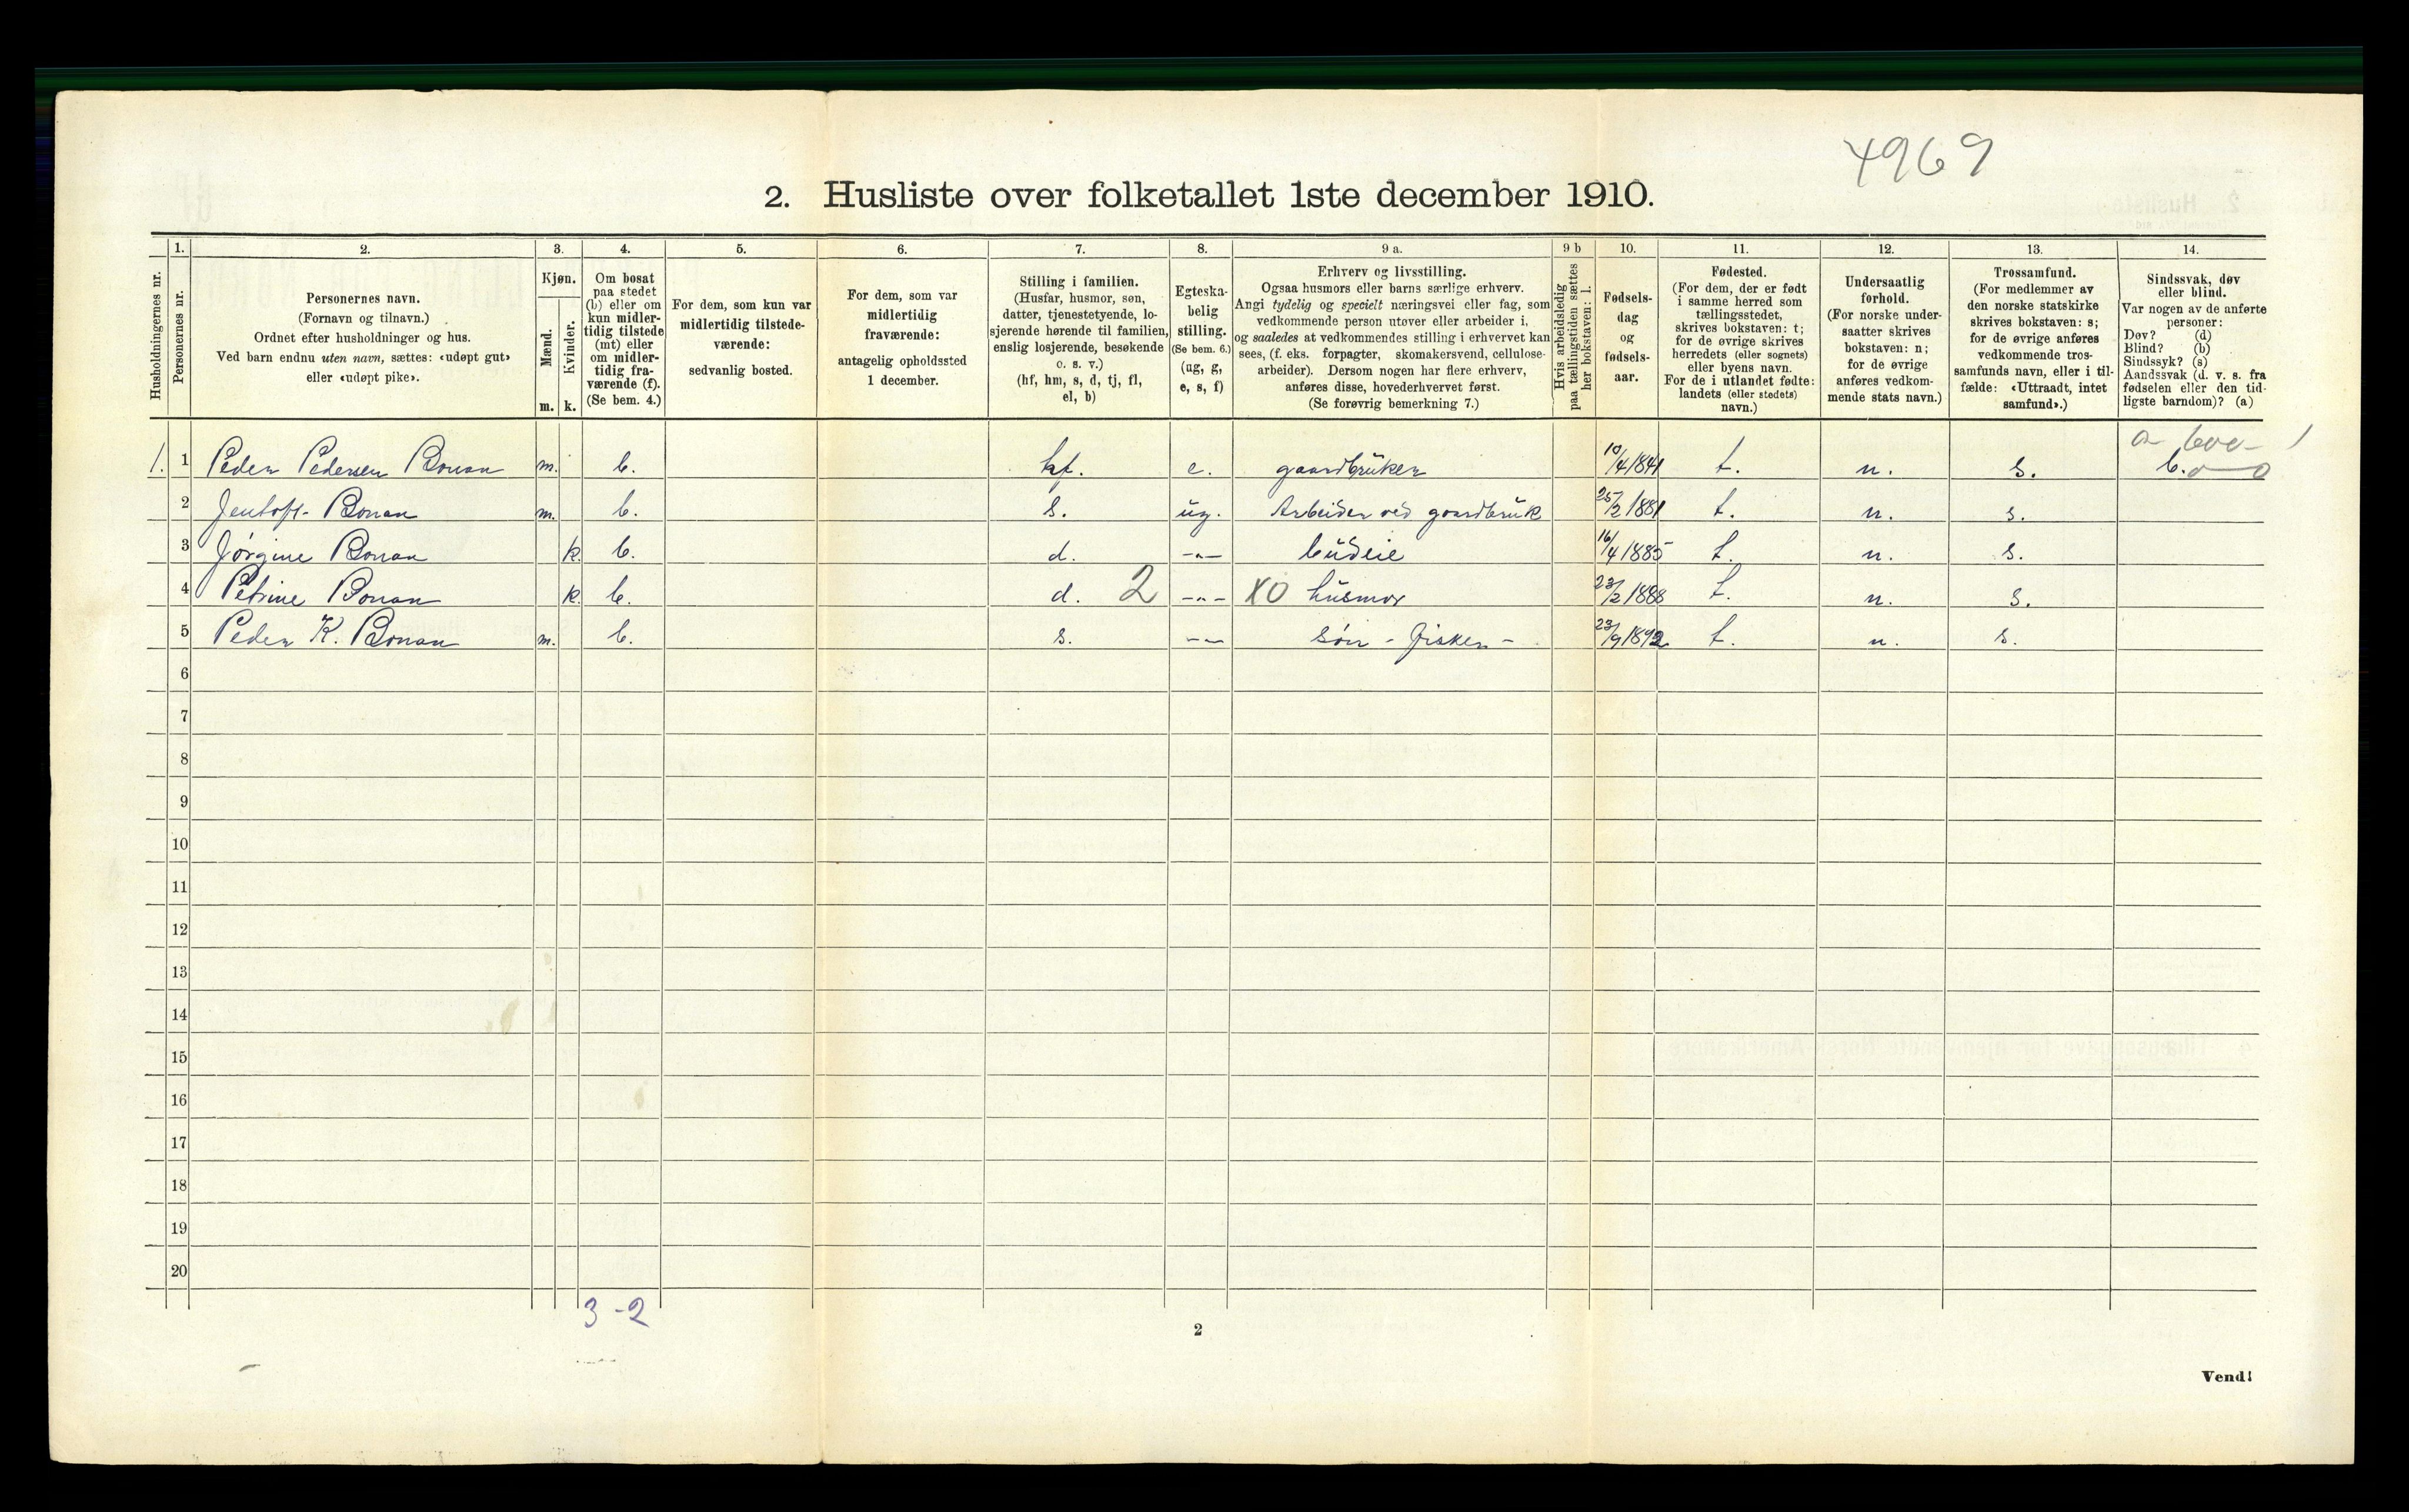 4969
2. Husliste over folketallet 1ste december 1910.
Husholdningernes nr.
1.
Personernes nr.
2.
Personernes navn.
(Fornavn og tilnavn.)
Ordnet efter husholdninger og hus.
Ved barn endnu uten navn, sættes: «udøpt gut»
eller «udøpt pike».
3.
Kjøn.
Mænd.
Kvinder.
m. k.
4.
Om bosat
paa stedet
(b) eller om
kun midler-
tidig tilstede
(mt) eller
om midler-
tidig fra-
værende (f).
(Se bem. 4.)
5.
For dem, som kun var
midlertidig tilstede-
værende:
sedvanlig bosted.
6.
For dem, som var
midlertidig
fraværende:
antagelig opholdssted
1 december.
7.
Stilling i familien.
(Husfar, husmor, søn,
datter, tjenestetyende, lo-
sjerende hørende til familien,
enslig losjerende, besøkende
o. s. v.)
(hf, hm, s, d, tj, fl,
el, b)
8.
Egteska-
belig
stilling.
(Se bem. 6.)
(ug, g,
e, s, f)
9 a.
Erhverv og livsstilling.
Ogsaa husmors eller barns særlige erhverv.
Angi tydelig og specielt næringsvei eller fag, som
vedkommende person utøver eller arbeider i,
og saaledes at vedkommendes stilling i erhvervet kan
sees, (f. eks. forpagter, skomakersvend, cellulose-
arbeider). Dersom nogen har flere erhverv,
anføres disse, hovederhvervet først.
(Se forøvrig bemerkning 7.)
9 b
Hvis arbeidsledig
paa tællingstiden sættes
her bokstaven: l.
10.
Fødsels-
dag
og
fødsels-
aar.
11.
Fødested.
(For dem, der er født
i samme herred som
tællingsstedet,
skrives bokstaven: t;
for de øvrige skrives
herredets (eller sognets)
eller byens navn.
For de i utlandet fødte:
landets (eller stedets)
navn.)
12.
Undersaatlig
forhold.
(For norske under-
saatter skrives
bokstaven: n;
for de øvrige
anføres vedkom-
mende stats navn.)
13.
Trossamfund.
(For medlemmer av
den norske statskirke
skrives bokstaven: s;
for de øvrige anføres
vedkommende tros-
samfunds navn, eller i til-
fælde: «Uttraadt, intet
samfund».)
14.
Sindssvak, døv
eller blind.
Var nogen av de anførte
personer:
Døv? (d)
Blind? (b)
Sindssyk? (s)
Aandssvak (d. v. s. fra
fødselen eller den tid-
ligste barndom)? (a)
1. 1 Peder Pedersen Bonan m. b. hf. e. gaardbruker 10/4 1841 t. n. s. b.
2 Jentoft Bonan m. b. s. ug. Arbeider ved gaardbruk 25/2 1881 t. n. s.
3 Jørgine Bonan k. b. d. -"- budeie 16/4 1885 t. n. s.
4 Petrine Bonan k. b. d. 2 -"- XO husmor 23/2 1888 t. n. s.
5 Peder K. Bonan m. b. s. -"- søn - fisker - 23/9 1892 t. n. s.
6
7
8
9
10
11
12
13
14
15
16
17
18
19
20
3-2
2
Vend!